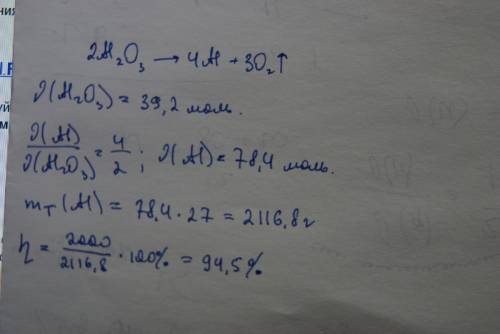 2Al₂O₃ → 4Al + 3O₂↑
ν(Al₂O₃) = 39,2 моль.
ν(Al)/ν(Al₂O₃) = 4/2 ; ν(Al) = 78,4 моль.
mт(Al) = 78,4 · 27 = 2116,8 г
η = 2000/2116,8 · 100% = 94,5%